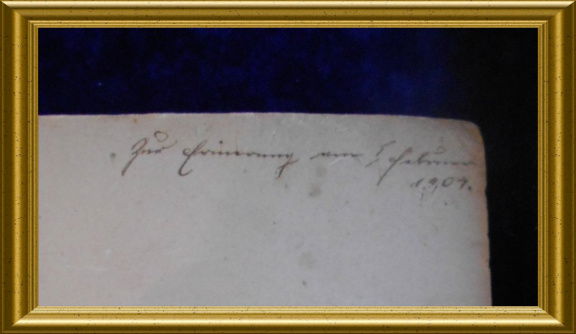 Zur Erinnerung am 5 Februar
1904.